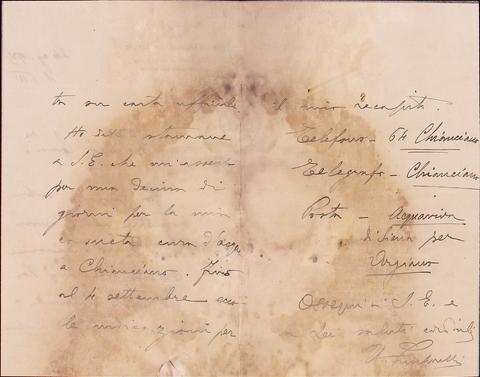 ta su carta ufficiale
Ho detto stamane
a S. E. che mi assento
per una decina di
giorni per la mia
consueta cura d'acque
a Chianciano. Fino
al 4 settembre ecco
le indicazioni per
il mio recapito.
Telefono - 64 Chianciano
Telegrafo - Chianciano
Posta - Acquaviva
di Siena per
Argiano
Ossequi a S. E. e
a Lei saluti cordiali